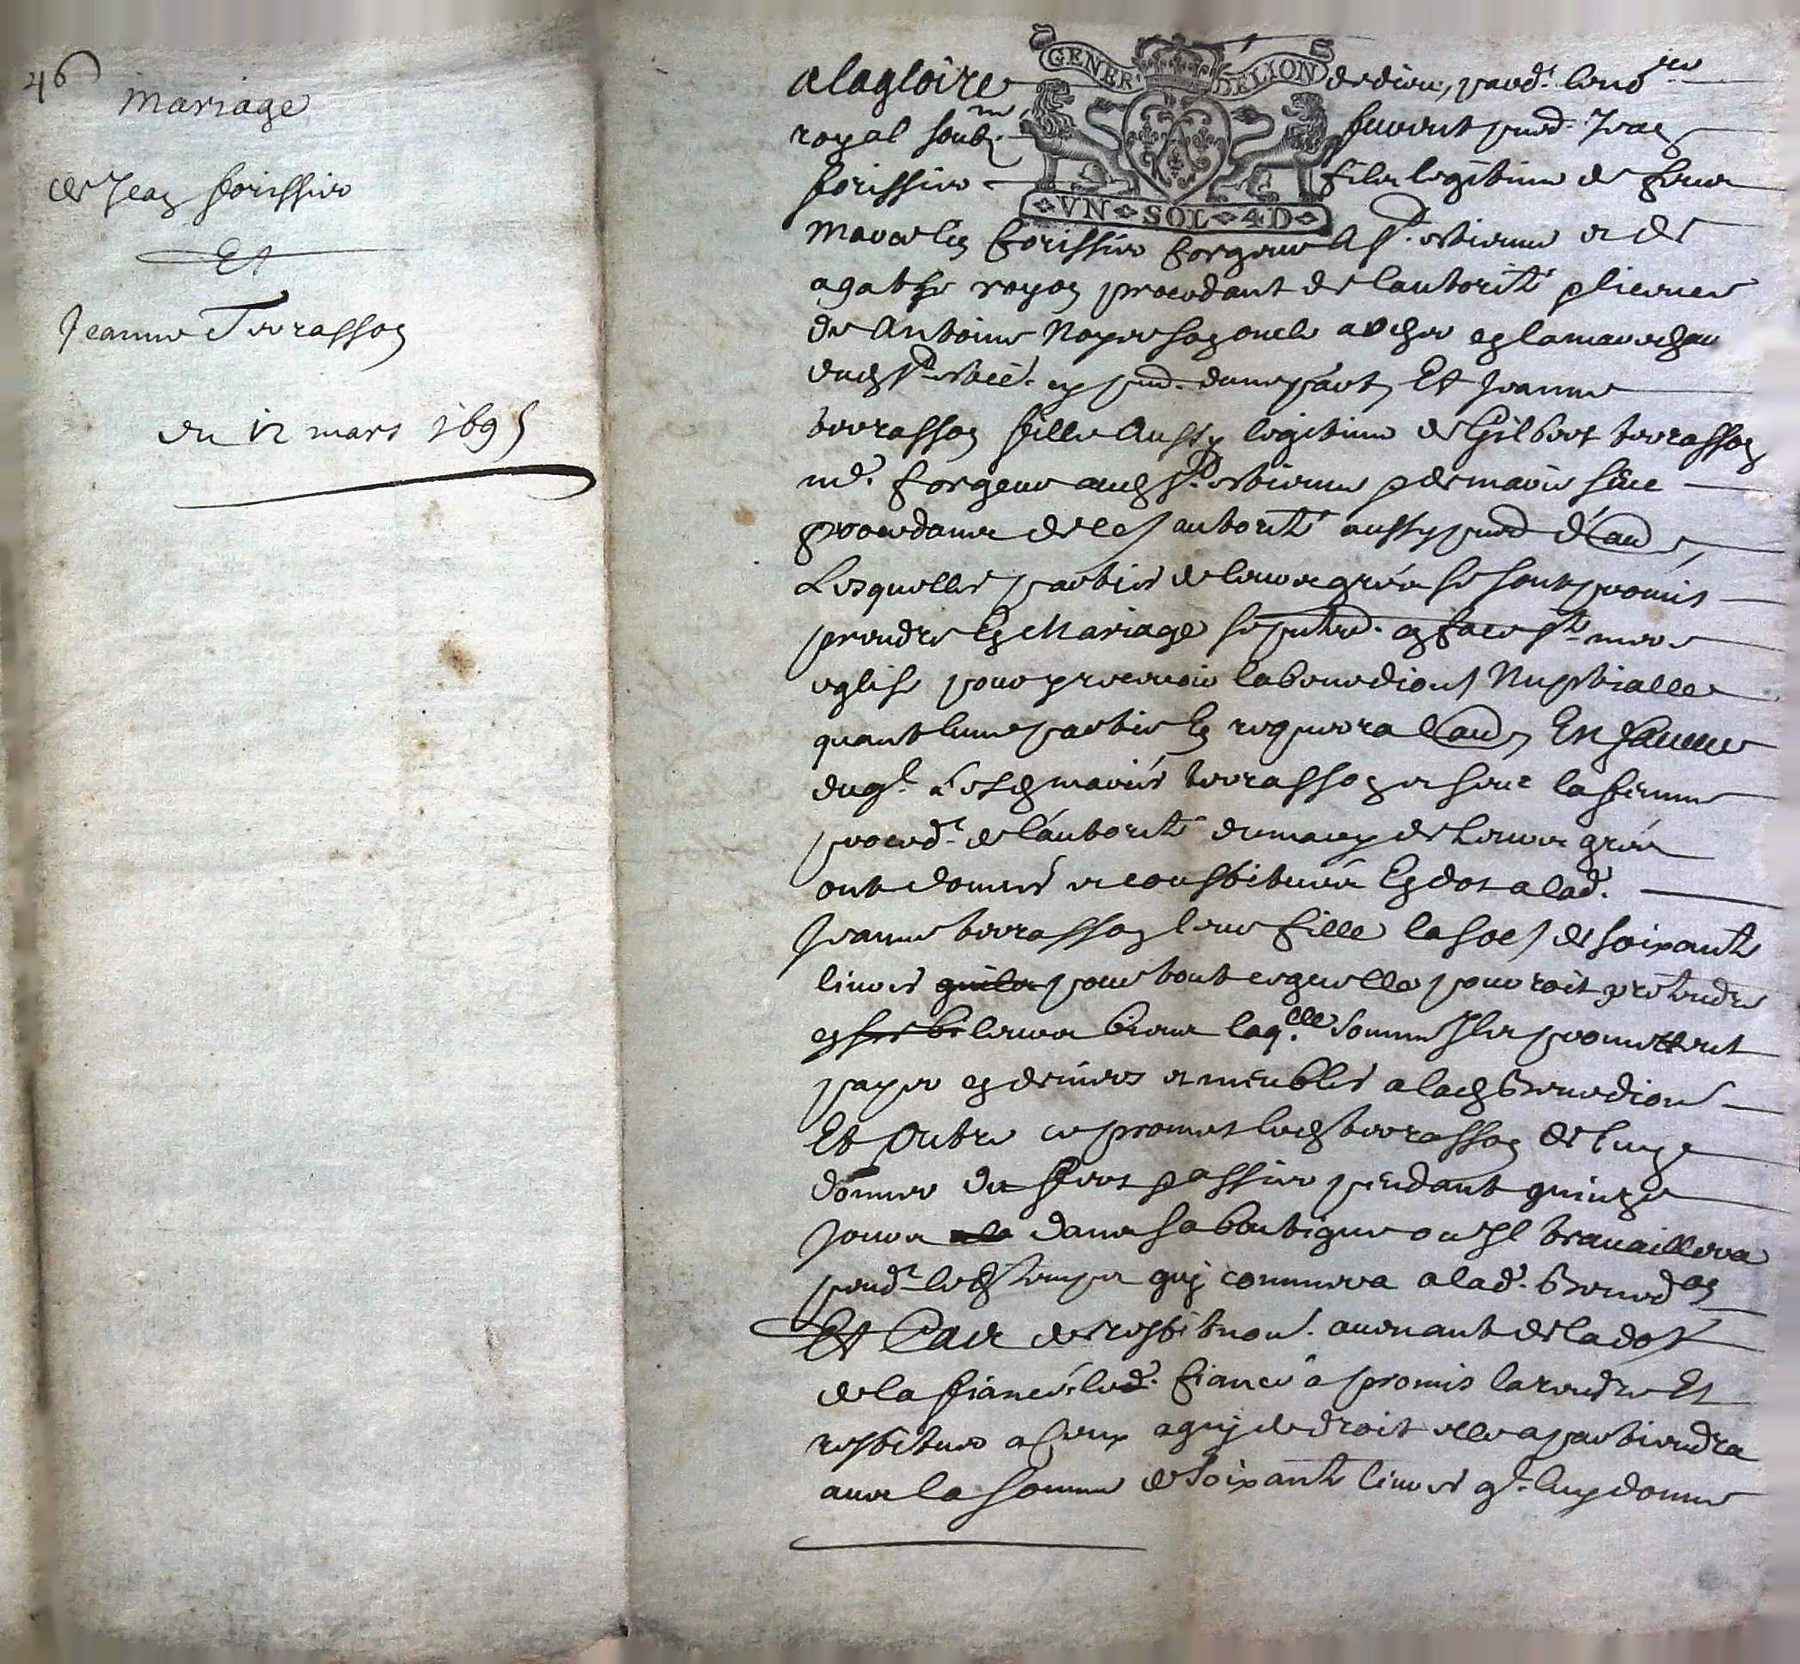 46
Mariage
de Jean forissier
Et
Jeanne Terrasson
du 12 mars 1695
GENER. DELION
VN SOL 4D
a la gloire de dieu, pard.t le no.re
royal soub.né furent pnts Jean
forissier fils legitime de feu
Marcelin forissier forgeur a St. estienne et de
agathe royon procedant de lautorité
de Antoine Noyer son oncle archer en la marechau
dud St. estie. cy pnt. dune part, Et Jeanne
terrasson fille Aussy legitime de Gilbert terrasson
md. forgeur aud St. estienne & de marie
procedante de leur autorité aussy pnt d'autre
Lesquelles parties de leurs grés se sont promis
prendre En Mariage se pnter. en face Ste mere
eglise pour y recevoir la benediction Nuptialle
quant lune partie En requerra lautre, En faveur
duql. Lesd mariés terrasson et la femme
proced.t de lautorité du mary de Leurs grés
ont donné et constitué En dot a lad.
Jeanne terrasson leur fille la some de soixante
livres pour tout ce quelle pourroit pretendre
en leurs biens laq.elle somme Ils promettent
payer en deniers et meubles a lad Benediction
Et Outre ce promet led terrasson de
donner du fert pendant quinze
Jours dans sa boutique ou Il travaillera
pend.t led temps quy commera a lad. Bened.on
Et Cas de restitution avenant de la dot
de la fiancée led. fiancé a promis la rendre Et
restituer a Ceux a quy de droit elle apartiendra
avec la somme de soixante livres q. luy donne